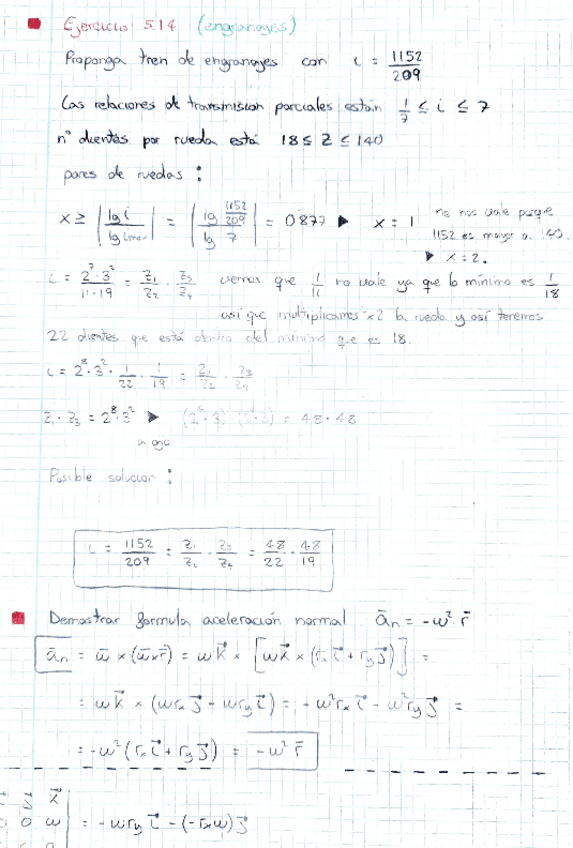 Ejercicio 5.14 (engranajes)
Proponga tren de engranajes con i = 1152/209
Las relaciones de transmision parciales están 1/7 ≤ i ≤ 7
nº dientes por rueda está 18 ≤ Z ≤ 140
pares de ruedas :
x ≥ |lg i / lg imax| = |lg 1152/209 / lg 7| = 0877 ▶ x = 1 no nos vale porque
1152 es mayor a 140.
▶ x = 2.
i = 2⁷·3²/11·19 = Z₁/Z₂ · Z₃/Z₄ vemos que 1/11 no vale ya que lo mínimo es 1/18
así que multiplicamos x2 la rueda y así tenemos
22 dientes que está dentro del mínimo que es 18.
i = 2⁸·3²·1/22·1/19 = Z₁/Z₂ · Z₃/Z₄
Z₁·Z₃ = 2⁸·3² ▶ (2⁴·3)·(2⁴·3) = 48·48
Posible solucion :
i = 1152/209 = Z₁/Z₂ · Z₃/Z₄ = 48/22 · 48/19
Demostrar formula aceleración normal ān = -ω² r̄
ān = ω̄ × (ω̄×r̄) = ωk⃗ × [ωk⃗ × (rx i⃗ + ry j⃗)] =
= ωk⃗ × (ωrx j⃗ - ωry i⃗) = -ω²rx i⃗ - ω²ry j⃗ =
= -ω²(rx i⃗ + ry j⃗) = -ω² r̄
j⃗ k⃗
0 ω | = -ωry i⃗ - (-rxω)j⃗